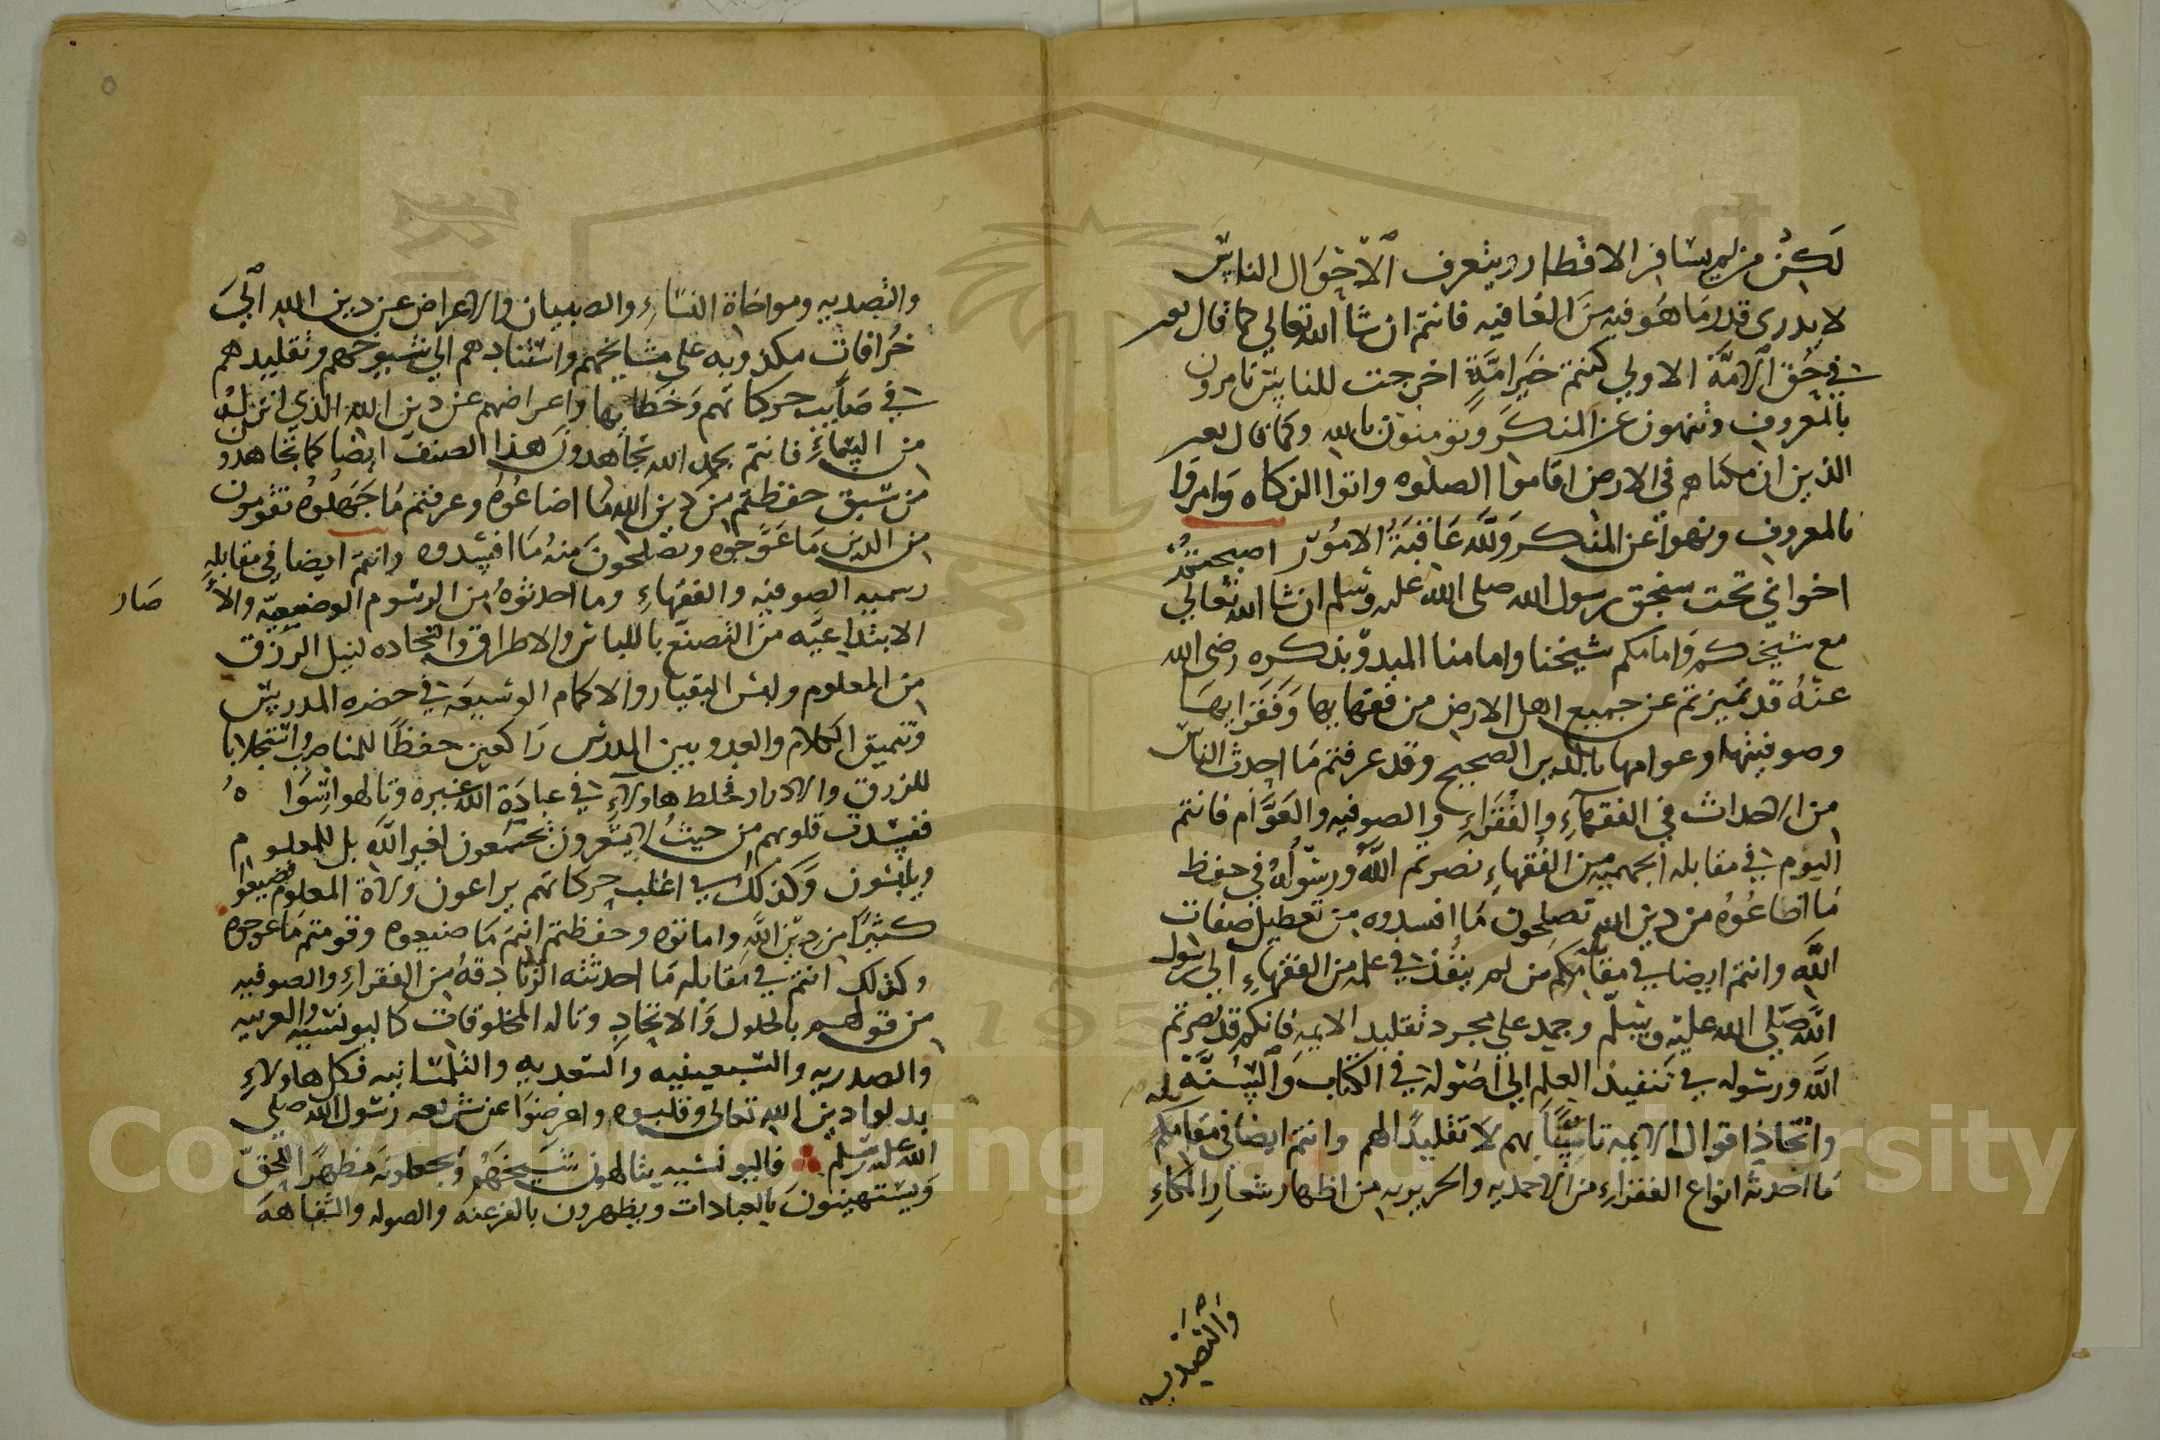 لكن من لم يسافر الاقطار ويتعرف الاحوال الناس
لا يدري قدر ما هو فيه من العافيه فانتم ان شا الله تعالي كما قال تعر
في حق الامة الاولي كنتم خير امة اخرجت للناس تامرون
بالمعروف وتنهون عن المنكر وتومنون بالله وكما قال تعر
الذين ان مكناهم في الارض اقاموا الصلوه واتوا الزكاه وامروا
بالمعروف ونهوا عن المنكر ولله عاقبة الامور اصبحتم
اخواني تحت سنجق رسول الله صلى الله عليه وسلم ان شا الله تعالي
مع شيخكم وامامكم شيخنا وامامنا المبدو بذكره رضي الله
عنه قد تميزتم عن جميع اهل الارض من فقهايها وفقرايها
وصوفيتها وعوامها بالدين الصحيح وقد عرفتم ما احدث الناس
من الاحداث في الفقهاء والفقراء والصوفيه والعوام فانتم
اليوم في مقابله الجهميه من الفقهاء نصرتم الله ورسوله في حفظ
ما اضاعوه من دين الله تصلحون ما افسدوه من تعطيل صفات
الله وانتم ايضا في مقابلة من لم ينفذ في علمه من الفقهاء الي رسول
الله صلي الله عليه وسلم وجمد علي مجرد تقليد الايمه فانكم قد نصرتم
الله ورسوله في تنفيذ العلم الي اصوله في الكتاب والسنة
واتخاذ اقوال الايمه تانيسا بهم لا تقليدا لهم وانتم ايضا في مقابلة
ما احدثه انواع الفقراء من الاحمديه والحريريه من اظهار شعار المكاء
والتصديه
والتصديه ومواخاة النساء والصبيان والاعراض عن دين الله الي
خرافات مكذوبه علي مشايخهم واستنادهم الي شيوخهم وتقليدهم
في صايب حركاتهم وخطايها واعراضهم عن دين الله الذي انزله
من السماء فانتم بحمد الله تجاهدون هذا الصنف ايضا كما تجاهدون
من سبق حفظتم من دين الله ما اضاعوه وعرفتم ما جهلوه تقومون
من الدين ما عوجوه وتصلحون منه ما افسدوه وانتم ايضا في مقابله
رسميه الصوفيه والفقهاء وما احدثوه من الرسوم الوضعيه والا
صار
الابتداعيه من التصنع باللباس والاطراق والسجاده لنيل الرزق
من المعلوم ولبس البقيار والاكمام الوسيعه في حضره المدرس
وتنميق الكلام والعدو بين المدرس راكعين حفظا للمناصب واستجلابا
للرزق والادرار فخلط هاولاء في عبادة الله غيره وتالهوا سواه
ففسدت قلوبهم من حيث لا يشعرون يجتمعون لغير الله بل للمعلوم
ويلبسون وكذلك في اغلب حركاتهم يراعون ولاة المعلوم فضيعوا
كثيرا من دين الله واماتوه وحفظتم انتم ما ضيعوه وقومتم ما عوجوه
وكذلك انتم في مقابله ما احدثته الزنادقة من الفقراء والصوفيه
من قولهم بالحلول والاتحاد وتاله المخلوقات كاليونسيه والعربيه
والصدريه والسبعينيه والسعديه والتلمسانيه فكل هاولاء
بدلوا دين الله تعالى وقلبوه واعرضوا عن شريعه رسول الله صلي
الله عليه وسلم فاليونسيه يتالهون شيخهم ويجعلونه مظهرا للحق
ويستهينون بالعبادات ويظهرون بالفرعنة والصوله والسفاهة